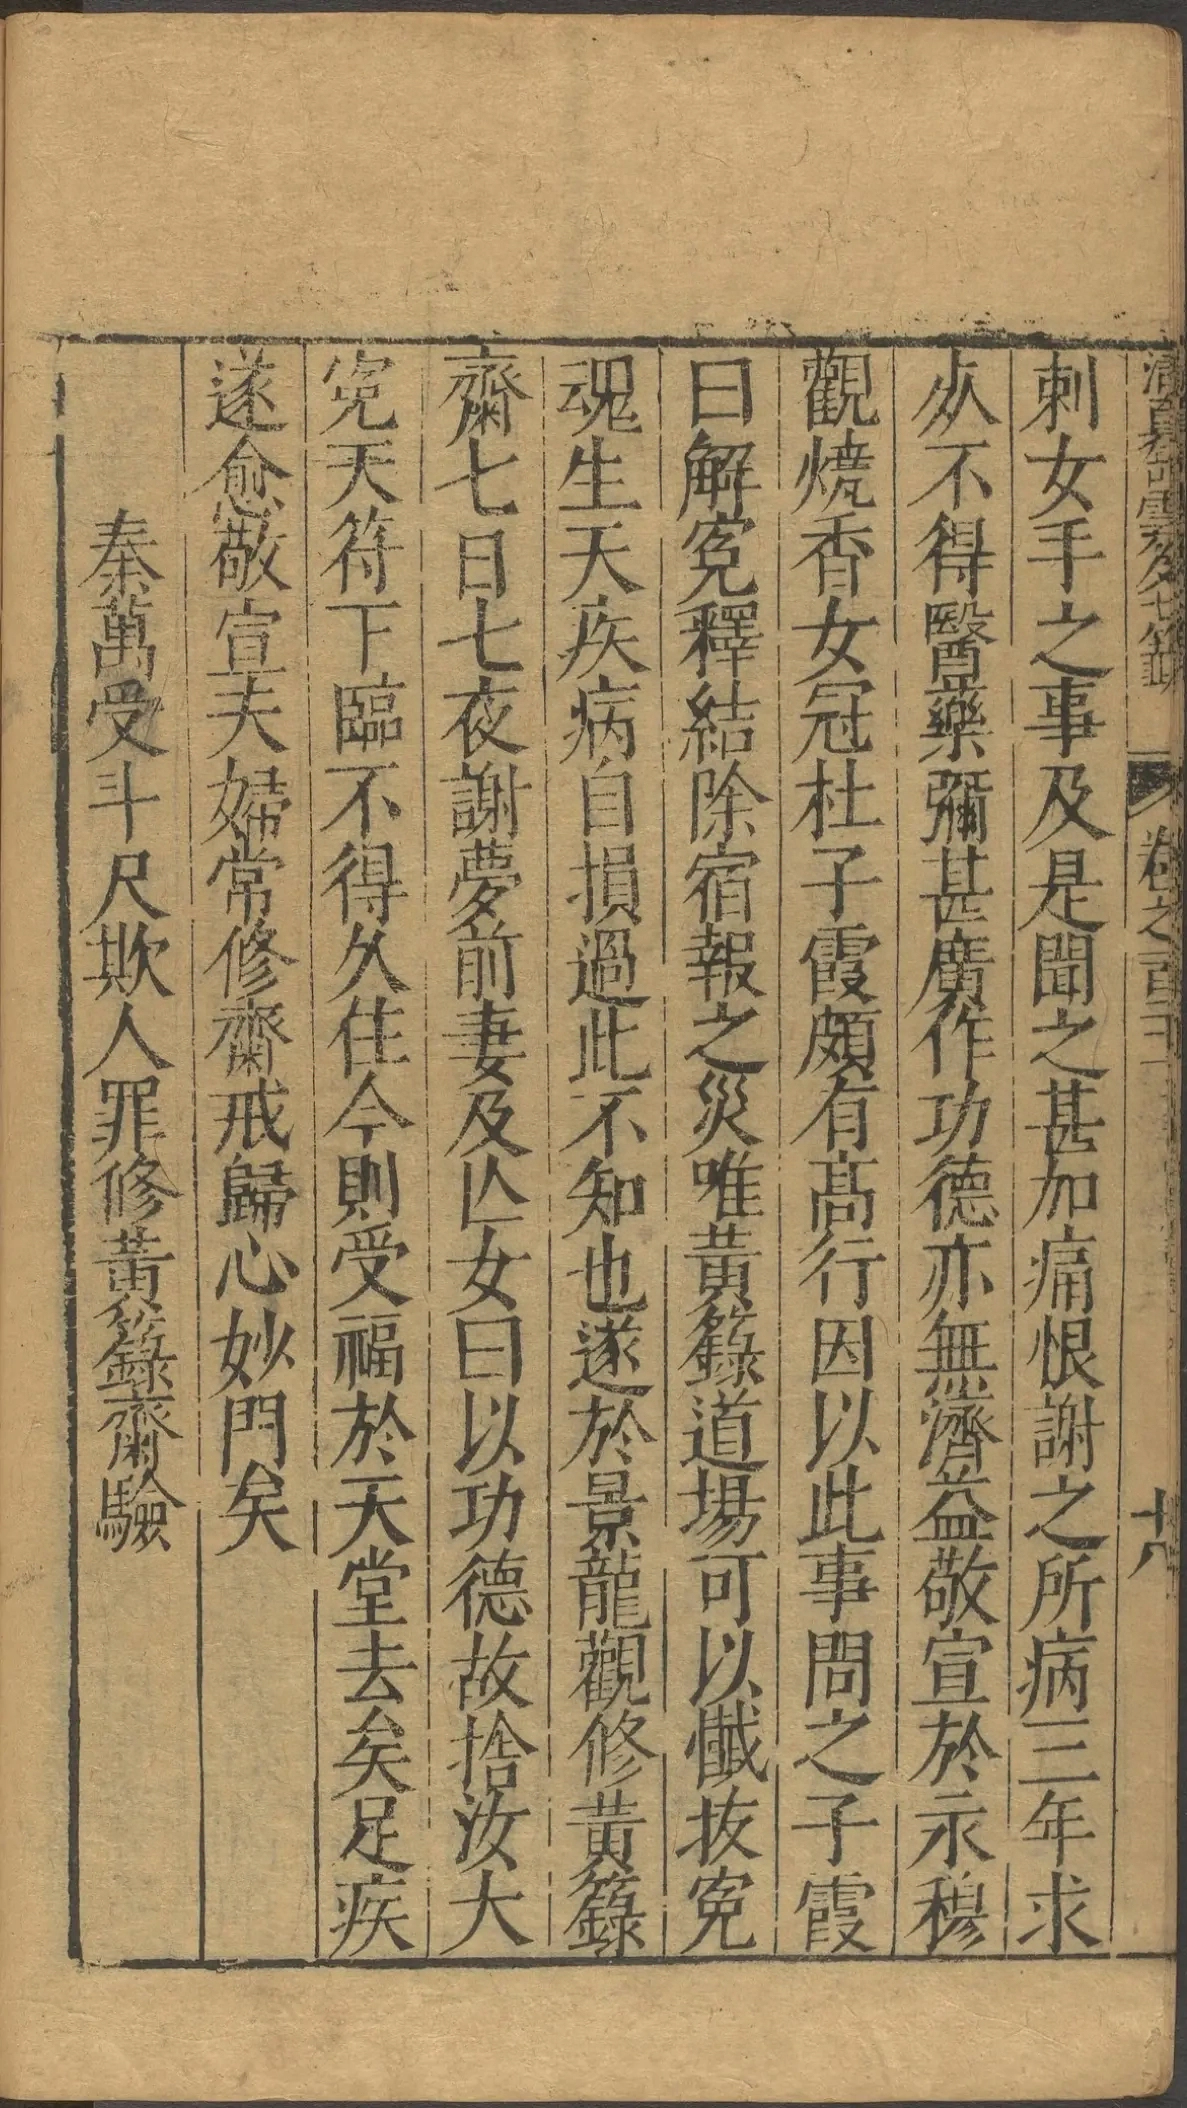 刺女手之事及是聞之甚加痛恨謝之所病三年求
𣧑不得醫藥彌甚廣作功德亦無濟益敬宣於永穆
觀燒香女冠杜子霞頗有高行因以此事問之子霞
曰解寃釋結除宿報之災唯黃籙道場可以懺拔寃
魂生天疾病自損過此不知也遂於景龍觀修黃籙
齋七日七夜謝夢前妻及亾女曰以功德故捨汝大
寃天符下臨不得久住今則受福於天堂去矣足疾
遂愈敬宣夫婦常修齋戒歸心妙門矣
秦萬受斗尺欺人罪修黃籙齋驗
卷之一百二十
十八